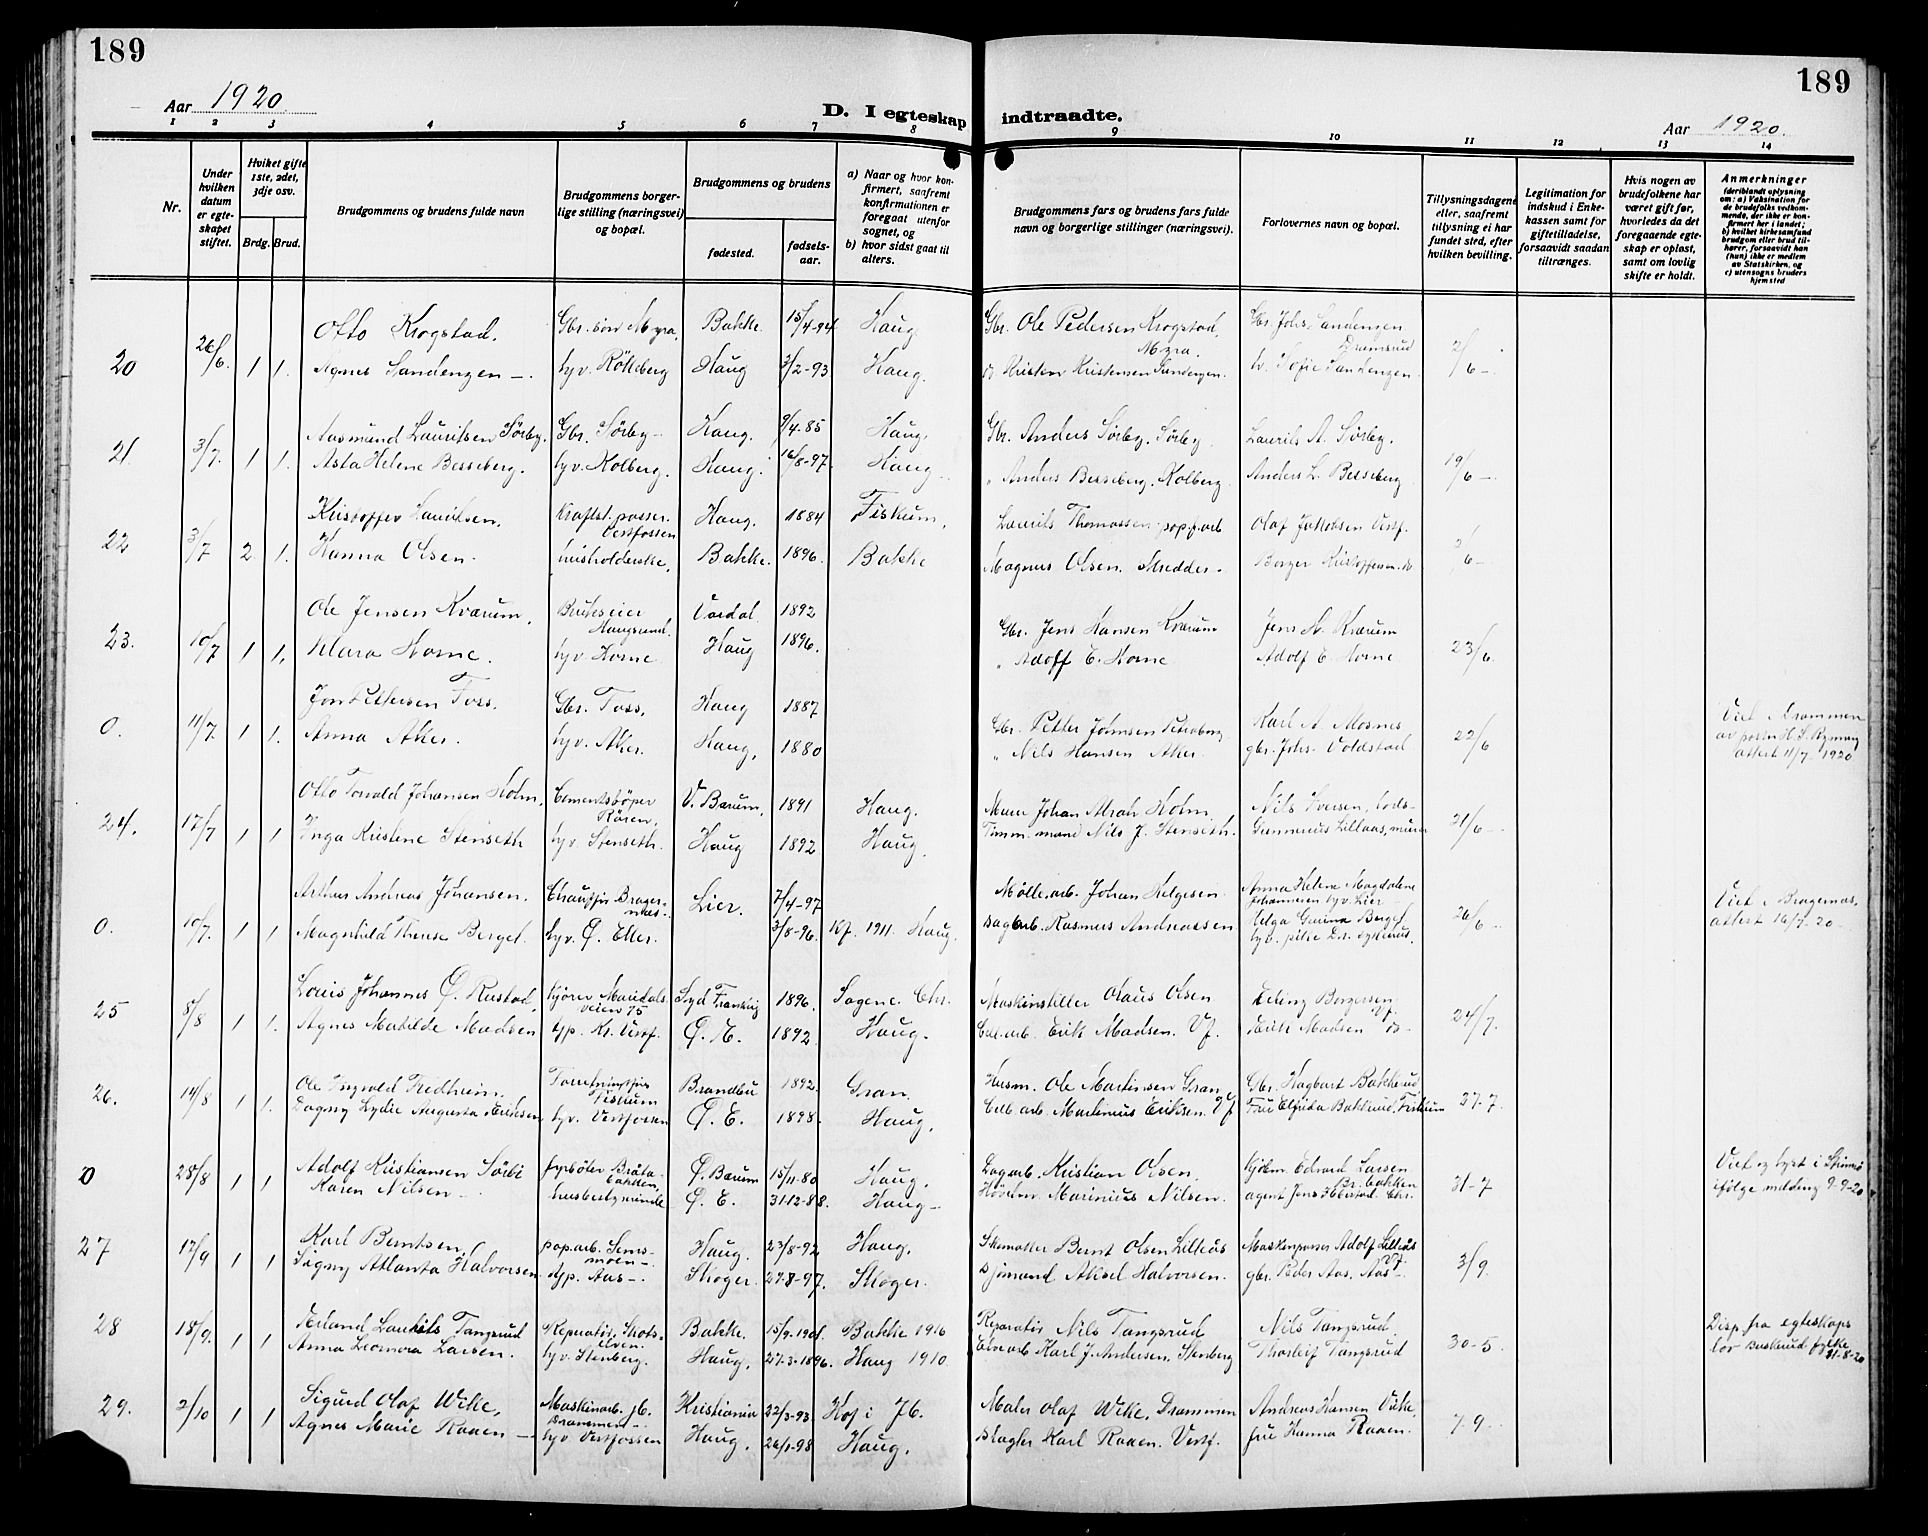 189
189
Aar 1920.
D. I egteskap indtraadte.
Aar 1920.
1 2 3 4 5 6 7 8 9 10 11 12 13 14
Nr.
Under hvilken datum er egteskapet stiftet.
Hvilket gifte 1ste, 2det, 3dje osv.
Brdg. Brud.
Brudgommens og brudens fulde navn
Brudgommens borgerlige stilling (næringsvei) og bopæl.
Brudgommens og brudens
fødested.
fødselsaar.
a) Naar og hvor konfirmert, saafremt konfirmationen er foregaat utenfor sognet, og
b) hvor sidst gaat til alters.
Brudgommens fars og brudens fars fulde navn og borgerlige stillinger (næringsvei).
Forlovernes navn og bopæl.
Tillysningsdagene eller, saafremt tillysning ei har fundet sted, efter hvilken bevilling.
Legitimation for indskud i Enkekassen samt for giftetilladelse, forsaavidt saadan tiltrænges.
Hvis nogen av brudefolkene har været gift før, hvorledes da det foregaaende egteskap er opløst, samt om lovlig skifte er holdt.
Anmerkninger
(deriblandt oplysning om: a) Vaksination for de brudefolks vedkommende, der ikke er konfirmert her i landet;
b) hvilket kirkesamfund brudgom eller brud tilhører, forsaavidt han (hun) ikke er medlem av Statskirken, og
c) utensogns bruders hjemsted
Otto Krogstad. Gbr. sön Myra, Bakke 15/4-94 Haug. Gbr. Ole Pedersen Krogstad, Myra. Gbr. Johs. Sandenzen Dramsrud
20 26/6. 1 1. Agnes Sandenzen —. hv. Haug 3/2-93 Haug. Kristen Kristensen Sandenzen. Sofie Sandenzen 2/6 —
Aasmund Lauritsen Sörby. Gbr. Sörby — Haug. 9/4-85 Haug. Gbr. Anders Sörby. Sörby. Laurits A. Sörby.
21. 3/7. 1 1. Asta Helene Besseberg. hv. Kolberg. Haug. 16/8-97. Haug „ Anders Besseberg. Kolberg. Anders L. Besseberg 19/6 —
Kristoffer Lauritsen. Kraftst. passer. Vestfossen Haug. 1884 Fiskum. Laurits Thomassen pap.f.arb Olaf Jakobsen Vestf.
22 3/7 2 1. Hanna Olsen. husholderske, Bakke. 1896. Bakke Magnus Olsen. skredder. Borger Kristoffersen. do 2/6 —
Ole Jensen Kvarum, Brukseier Haugsund. Vardal 1892 Gbr. Jens Hansen Kvarum Jens H. Kvarum
23. 10/7 1 1. Klara Horne. hv. Horne Haug 1896. „ Adolf E. Horne Adolf E. Horne 23/6.
Jon Pettersen Foss. Gbr. Foss, Haug 1887 Gbr. Petter Johnsen Karl A. Mosnes Viet i Drammen
0. 11/7 1 1. Anna Aker. hv. Aker. Haug, 1880 „ Nils Hansen Aker gbr. Johs. Voldstad 22/6 attest 11/7 1920
Otto Torvald Johansen Holm, Cementstöper Rören, V. Bærum, 1891 Haug. Murer Johan Holm Nils Iversen,
24. 17/7 1 1 Inga Kristine Stenseth hv. Stenseth. Haug 1892 Haug. Tömm. mand Nils J. Stenseth. Gunnerius Lillaas, murer 21/6 —
Arthur Andreas Johansen. Chauffør Bragernæs. Lier. 7/4-97 Mölle.arb. Johan Helgesen. Anna Helene Magdalene Johannesen hv. Lier Viet i Bragernæs.
0. 10/7. 1 1 Magnhild Therese Berget. hv. Ø. Eker. 3/8-96. K7. 1911. Haug. Dagarb. Rasmus Andreassen Helga Gurina Berget 26/6 — attest 16/7-20
Louis Johannes Ø. Rustad, Kjörer Maridalsveien 75 Syd Frankrig 1896. Sagene. Chr. Maskinstiller Olaus Olsen Erling Borgersen, Vf.
25 8/8 1 1. Agnes Matilde Madsen Ø. E. 1892. Haug. Cel.arb. Erik Madsen. Vf. Erik Madsen do — 24/7.
Ole Ingvald Fredheim. Fiskum Brandbu 1892. Gran. Husm. Ole Martinsen Gran Gbr. Hagbart Bakkerud
26. 14/8 1 1. Dagny Lydie Augusta Eriksen hv. Vestfossen Ø. E. 1898. Haug. Cell arb. Martinius Eriksen. Vf Fru Elfrida Bakkerud. Fiskum 27-7.
Adolf Kristiansen Sörbö fyrböter Bråtabakken, Ø. Bærum 15/11-80 Haug. Dagarb. Kristian Olsen. Edvard Larsen Br. bakken Viet og lyst i
0 28/8 1 1 Karen Nilsen — husbestyrerinde Ø. E. 31-12-88. Haug — Marinius Nilsen. agent Jens Chr. 31-7 ifölge melding 9-9-20
Karl Berntsen pap.arb. Semsmoen —. Haug. 23/8-92 Haug. Skomaker Bernt Olsen Lilleås Maskinpasser Adolf Lilleås Vf.
27 12/9 1 1 Signy Atlanta Halvorsen dyp. Aas —. Skoger 27-8-97. Skoger. Sjömand Aksel Halvorsen. gbr. Peder Aas. Aas — 3/9.
Erland Laurits Tangsrud Reparatör. Skotselven. Bakke. 15/9-1901. Bakke 1916 Reparatör Nils Tangsrud Nils Tangsrud Disp. fra egteskaps
28 18/9. 1 1 Anna Leonora Larsen. hv. Stenberg. Haug. 27-3-1896. Haug 1910 Karl J. Andersen. Stenberg Thorleif Tangsrud 30-5. lov Buskerud fylke 31-8-20
Sigurd Olaf Wike, Maskinarb. Drammen Kristiania 22/3-93 Maler Olaf Wike. Drammen Andreas Hansen
29. 2/10 1 1 Agnes Marie Raaen — hv. Vestfossen Haug. 26/1-98 Haug. Slagter Karl Raaen. Vestf. fru Hanna Raaen. 7-9.